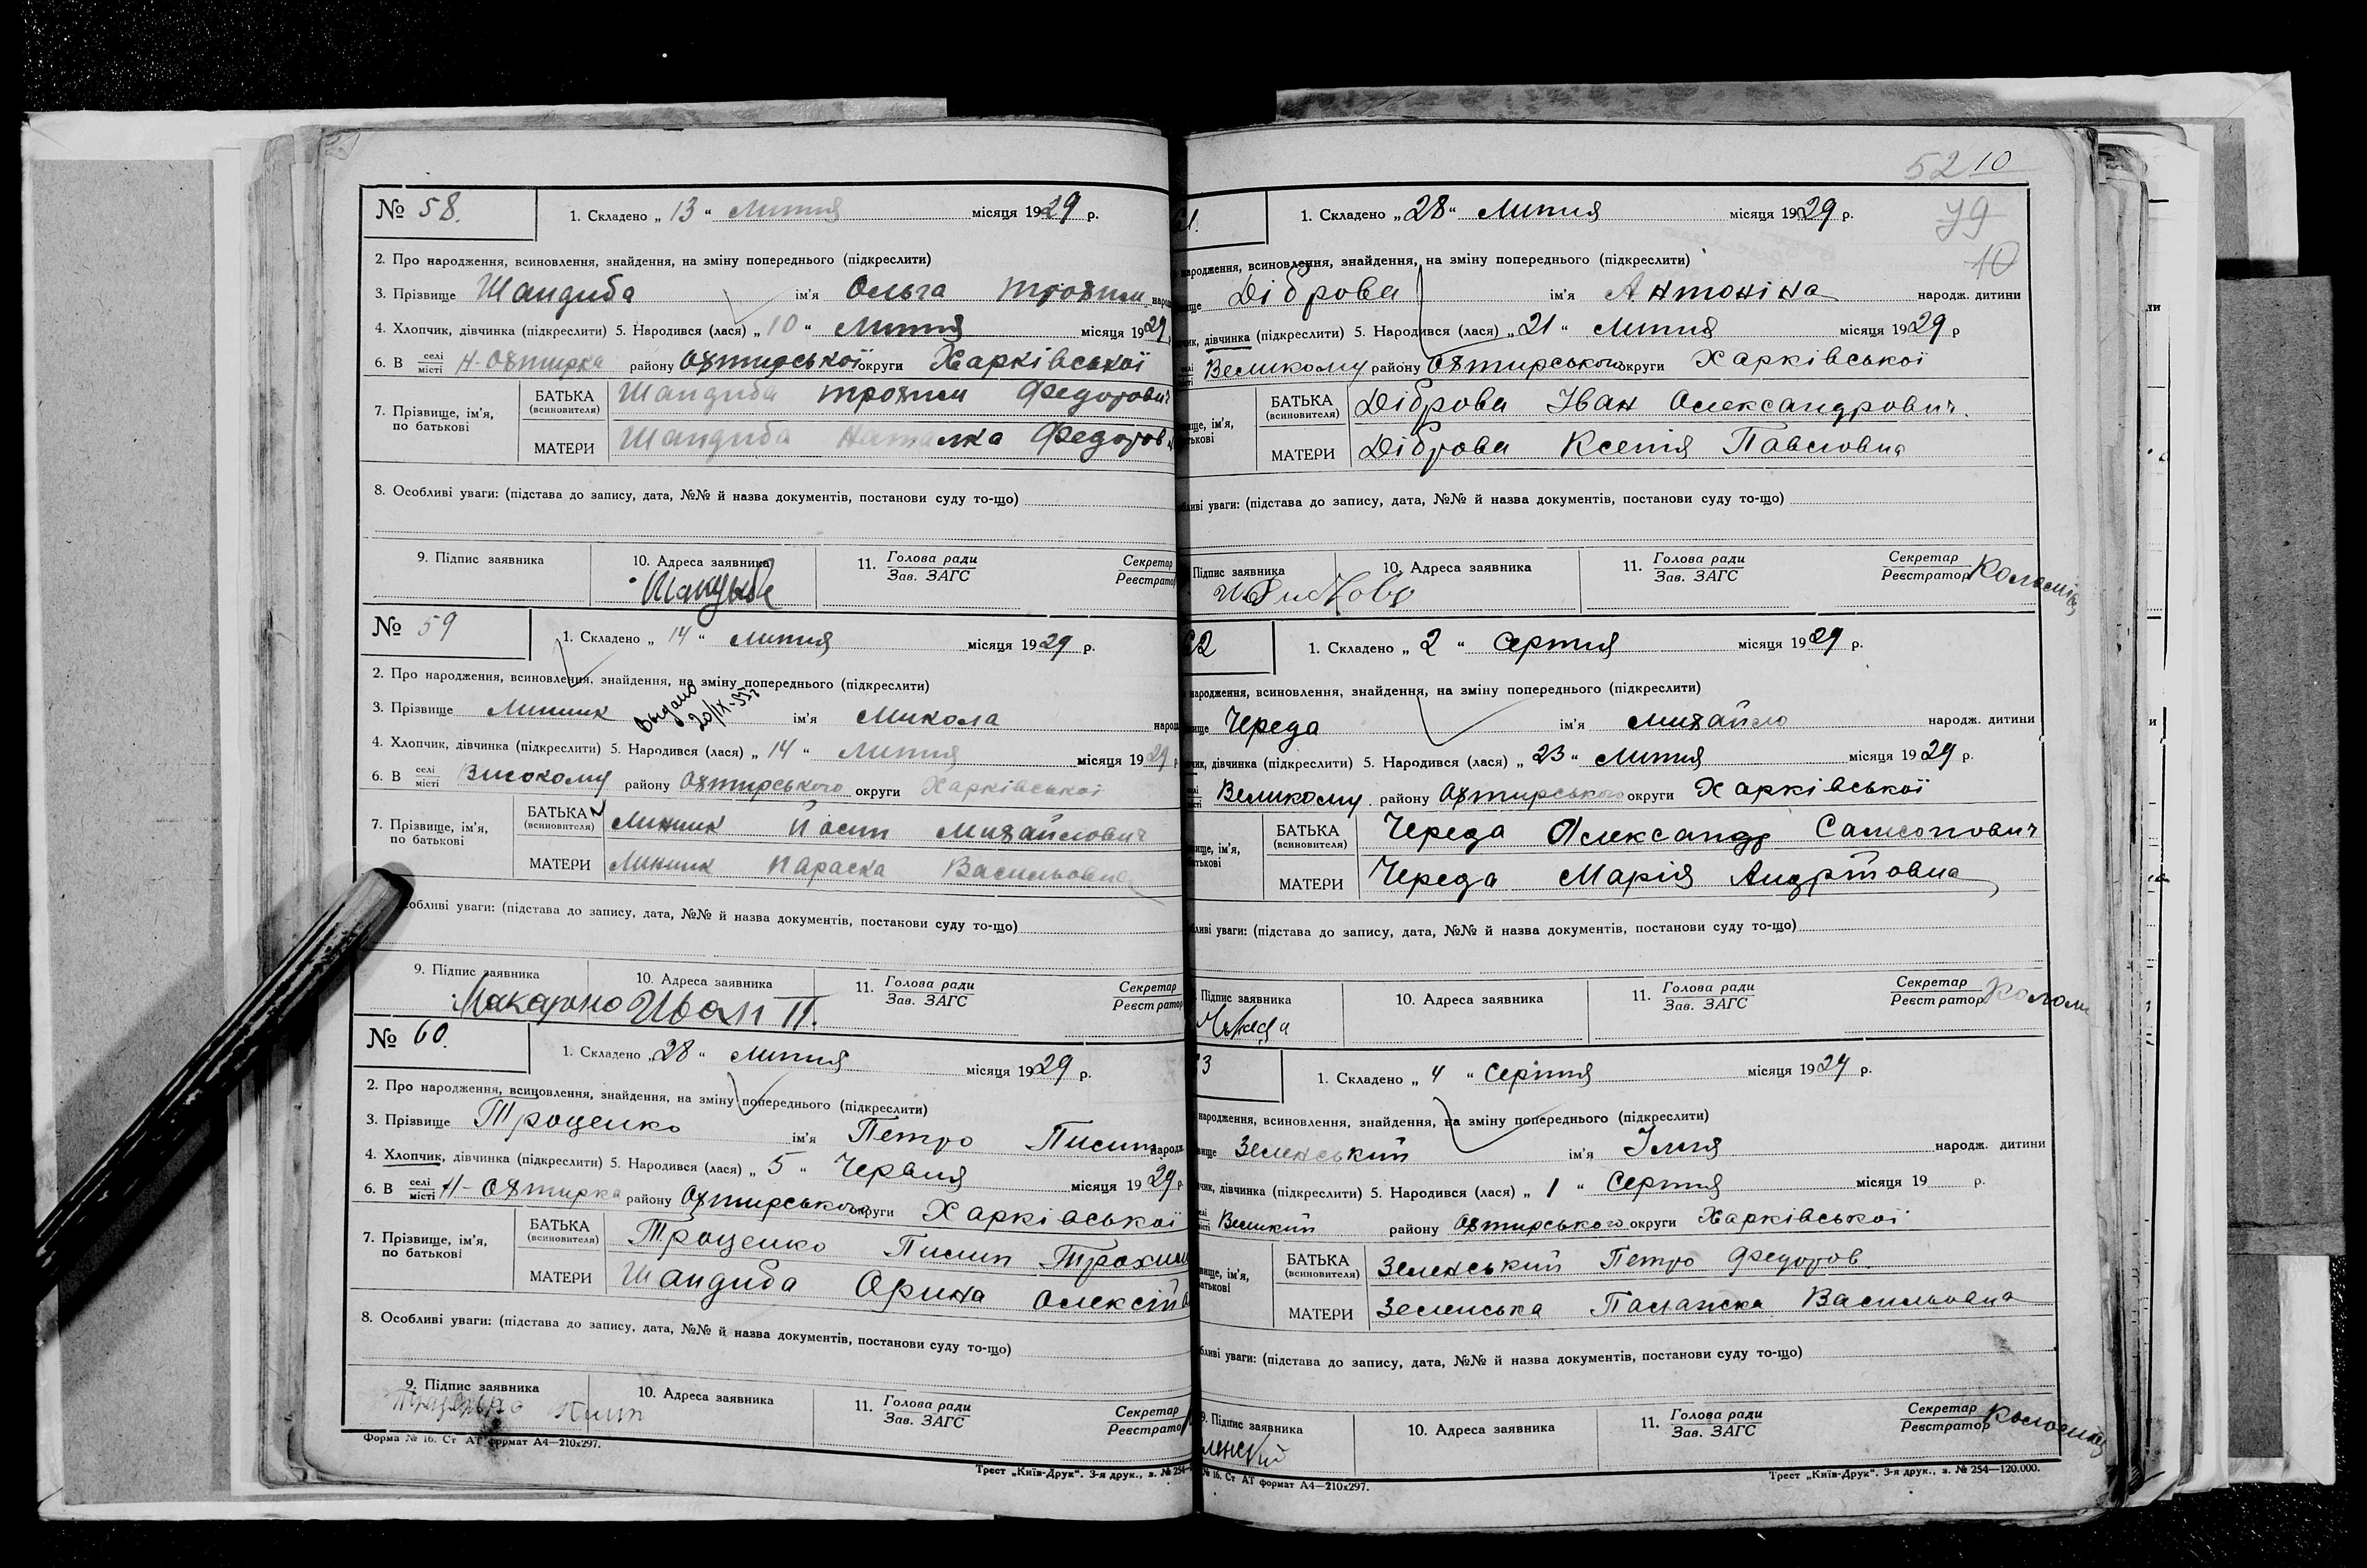 № 58. 1. Складено „ 13 “ Липня місяця 1929 р.
2. Про народження, всиновлення, знайдення, на зміну попереднього (підкреслити)
3. Прізвище Шандиба ім'я Ольга Трохим народ
4. Хлопчик, дівчинка (підкреслити) 5. Народився (лася) „ 10 “ Липня місяця 1929
6. В селі місті Н-Охтирка району Охтирської округи Харківської
7. Прізвище, ім'я, по батькові
БАТЬКА (всиновителя) Шандиба Трохим Федорович
МАТЕРИ Шандиба Наталка Федоровн
8. Особливі уваги: (підстава до запису, дата, №№ й назва документів, постанови суду то-що)
9. Підпис заявника 10. Адреса заявника 11. Голова ради Зав. ЗАГС Секретар Реєстратор
№ 59 1. Складено „ 14 “ Липня місяця 1929 р.
2. Про народження, всиновлення, знайдення, на зміну попереднього (підкреслити)
Выдано 20/IX-
3. Прізвище Линник ім'я Микола народ
4. Хлопчик, дівчинка (підкреслити) 5. Народився (лася) „ 14 “ Липня місяця 1929 р
6. В селі місті Високому району Охтирського округи Харківської
7. Прізвище, ім'я, по батькові
БАТЬКА (всиновителя) Линник Йосип Михайлович
МАТЕРИ Линник Параска Васильовна
собливі уваги: (підстава до запису, дата, №№ й назва документів, постанови суду то-що)
9. Підпис заявника 10. Адреса заявника 11. Голова ради Зав. ЗАГС Секретар Реєстратор
Иван П.
№ 60. 1. Складено „28 “ Липня місяця 1929 р.
2. Про народження, всиновлення, знайдення, на зміну попереднього (підкреслити)
3. Прізвище Троценко ім'я Петро Пилип народж
4. Хлопчик, дівчинка (підкреслити) 5. Народився (лася) „ 5 “ Червня місяця 1929 р
6. В селі місті Н-Охтирка району Охтирського округи Харківської
7. Прізвище, ім'я, по батькові
БАТЬКА (всиновителя) Троценко Пилип Трохим
МАТЕРИ Шандиба Орина Олексіїв
8. Особливі уваги: (підстава до запису, дата, №№ й назва документів, постанови суду то-що)
9. Підпис заявника 10. Адреса заявника 11. Голова ради Зав. ЗАГС Секретар Реєстратор
Форма № 16. Ст АТ формат А4—210х297.
Трест „Київ-Друк“. 3-я друк., з. № 254
52 10
61. 1. Складено „28“ Липня місяця 1929 р. 79
10
народження, всиновлення, знайдення, на зміну попереднього (підкреслити)
ище Діброва ім'я Антоніна народж. дитини
чик, дівчинка (підкреслити) 5. Народився (лася) „21 “ Липня місяця 1929 р
селі місті Великому району Охтирського округи Харківської
вище, ім'я, батькові
БАТЬКА (всиновителя) Діброва Іван Олександрович.
МАТЕРИ Діброва Ксенія Павловна
бливі уваги: (підстава до запису, дата, №№ й назва документів, постанови суду то-що)
Підпис заявника 10. Адреса заявника 11. Голова ради Зав. ЗАГС Секретар Реєстратор
62 1. Складено „ 2 “ Серпня місяця 1929 р.
народження, всиновлення, знайдення, на зміну попереднього (підкреслити)
вище Череда ім'я Михайло народж. дитини
чик, дівчинка (підкреслити) 5. Народився (лася) „ 23 “ Липня місяця 1929 р.
селі місті Великому району Охтирського округи Харківської
вище, ім'я, батькові
БАТЬКА (всиновителя) Череда Олександр Самсонович
МАТЕРИ Череда Марія Андріївна
бливі уваги: (підстава до запису, дата, №№ й назва документів, постанови суду то-що)
Підпис заявника 10. Адреса заявника 11. Голова ради Зав. ЗАГС Секретар Реєстратор
3 1. Складено „ 4 “ Серпня місяця 1929 р.
народження, всиновлення, знайдення, на зміну попереднього (підкреслити)
вище Зеленський ім'я Ілля народж. дитини
чик, дівчинка (підкреслити) 5. Народився (лася) „ 1 “ Серпня місяця 19 р.
селі місті Великий району Охтирського округи Харківської
вище, ім'я, батькові
БАТЬКА (всиновителя) Зеленський Петро Федоров.
МАТЕРИ Зеленська Палажка Васильовна
бливі уваги: (підстава до запису, дата, №№ й назва документів, постанови суду то-що)
9. Підпис заявника 10. Адреса заявника 11. Голова ради Зав. ЗАГС Секретар Реєстратор
ленский
№ 16. Ст АТ формат А4—210х297.
Трест „Київ-Друк“. 3-я друк., з. № 254—120.000.